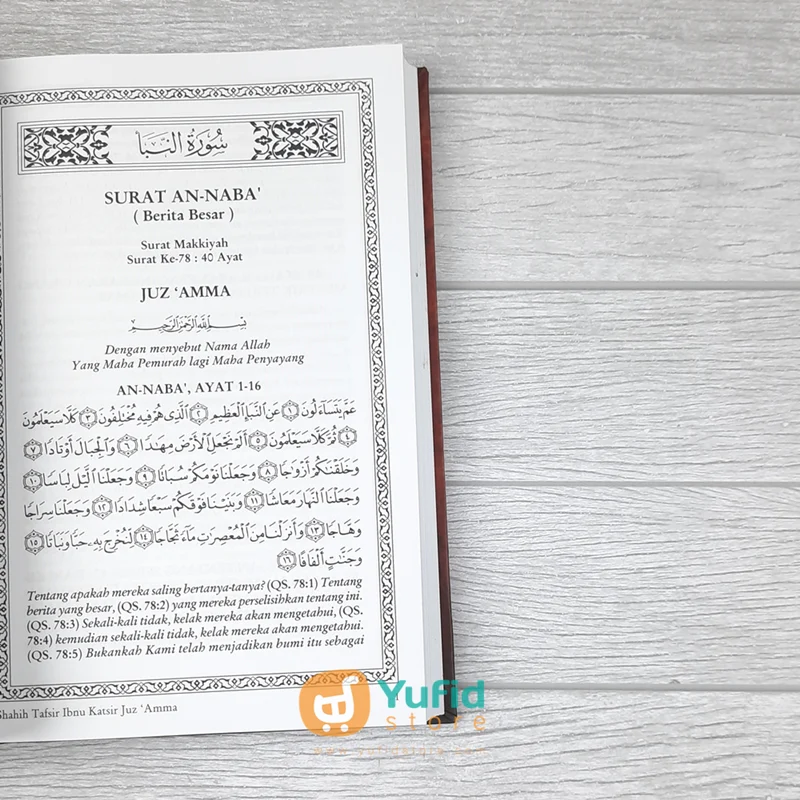 سُورَةُ النَّبَأِ
SURAT AN-NABA'
( Berita Besar )
Surat Makkiyah
Surat Ke-78 : 40 Ayat
JUZ ‘AMMA
بِسْمِ اللَّهِ الرَّحْمَٰنِ الرَّحِيمِ
Dengan menyebut Nama Allah
Yang Maha Pemurah lagi Maha Penyayang
AN-NABA', AYAT 1-16
عَمَّ يَتَسَاءَلُونَ ۝١ عَنِ النَّبَإِ الْعَظِيمِ ۝٢ الَّذِي هُمْ فِيهِ مُخْتَلِفُونَ ۝٣ كَلَّا سَيَعْلَمُونَ
۝٤ ثُمَّ كَلَّا سَيَعْلَمُونَ ۝٥ أَلَمْ نَجْعَلِ الْأَرْضَ مِهَٰدًا ۝٦ وَالْجِبَالَ أَوْتَادًا ۝٧
وَخَلَقْنَٰكُمْ أَزْوَٰجًا ۝٨ وَجَعَلْنَا نَوْمَكُمْ سُبَاتًا ۝٩ وَجَعَلْنَا الَّيْلَ لِبَاسًا ۝١٠
وَجَعَلْنَا النَّهَارَ مَعَاشًا ۝١١ وَبَنَيْنَا فَوْقَكُمْ سَبْعًا شِدَادًا ۝١٢ وَجَعَلْنَا سِرَاجًا
وَهَّاجًا ۝١٣ وَأَنزَلْنَا مِنَ الْمُعْصِرَٰتِ مَاءً ثَجَّاجًا ۝١٤ لِّنُخْرِجَ بِهِ حَبًّا وَنَبَاتًا ۝١٥
وَجَنَّٰتٍ أَلْفَافًا ۝١٦
Tentang apakah mereka saling bertanya-tanya? (QS. 78:1) Tentang
berita yang besar, (QS. 78:2) yang mereka perselisihkan tentang ini.
(QS. 78:3) Sekali-kali tidak, kelak mereka akan mengetahui, (QS.
78:4) kemudian sekali-kali tidak, kelak mereka akan mengetahui.
(QS. 78:5) Bukankah Kami telah menjadikan bumi itu sebagai
Shahih Tafsir Ibnu Katsir Juz ‘Amma
Yufid
store